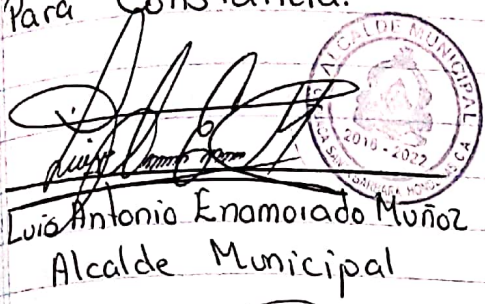 Para Constancia.
ALCALDE MUNICIPAL
2018-2022
Luis Antonio Enamorado Muñoz
Alcalde Municipal